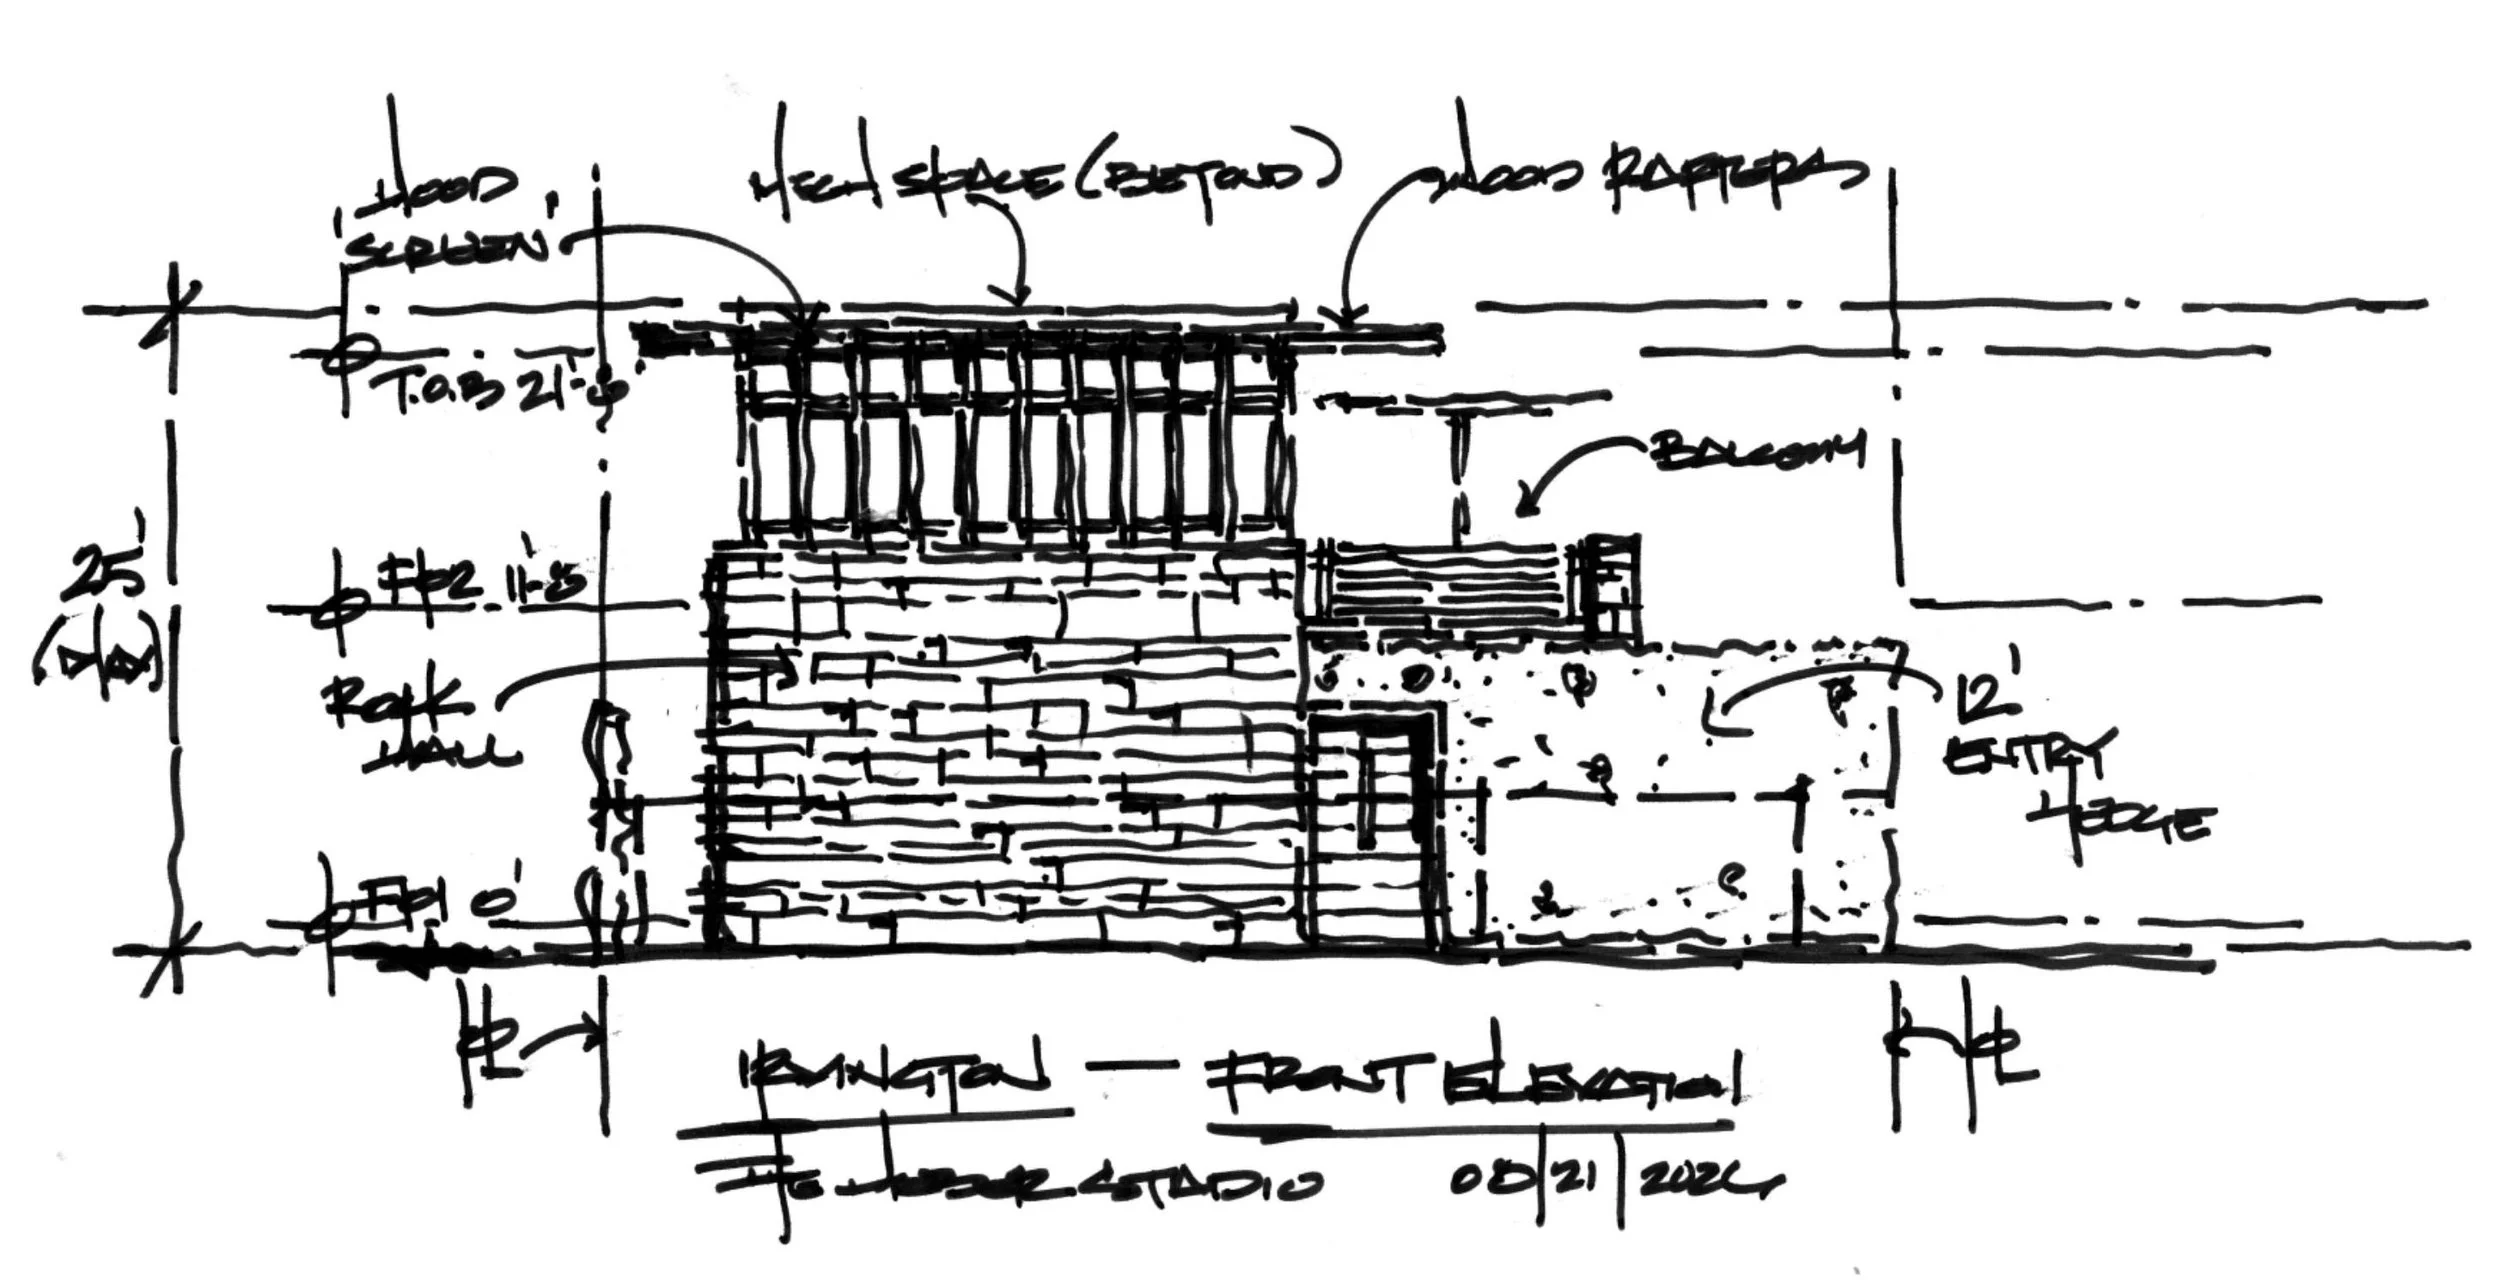 WOOD
'SCREEN'
MECH SPACE (BEYOND)
WOOD RAFTERS
T.O.B 21'-6'
BALCONY
25'
(MAX)
FF2 11'-6
ROCK
WALL
12'
ENTRY
HEDGE
FF1 0'
PL
PL
IRVINGTON — FRONT ELEVATION
THE STUDIO
08/21/2024